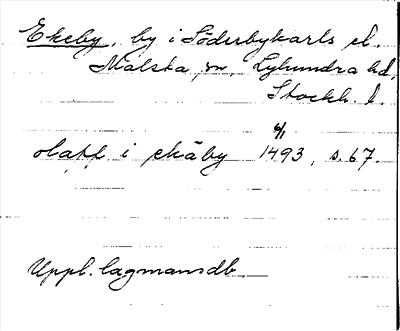 Ekeby, by i Söderbykarls el.
Malsta sn, Lyhundra hd,
Stockh. l.
6/1
olaff i ekäby 1493, s. 67.
Uppl. lagmansdb.